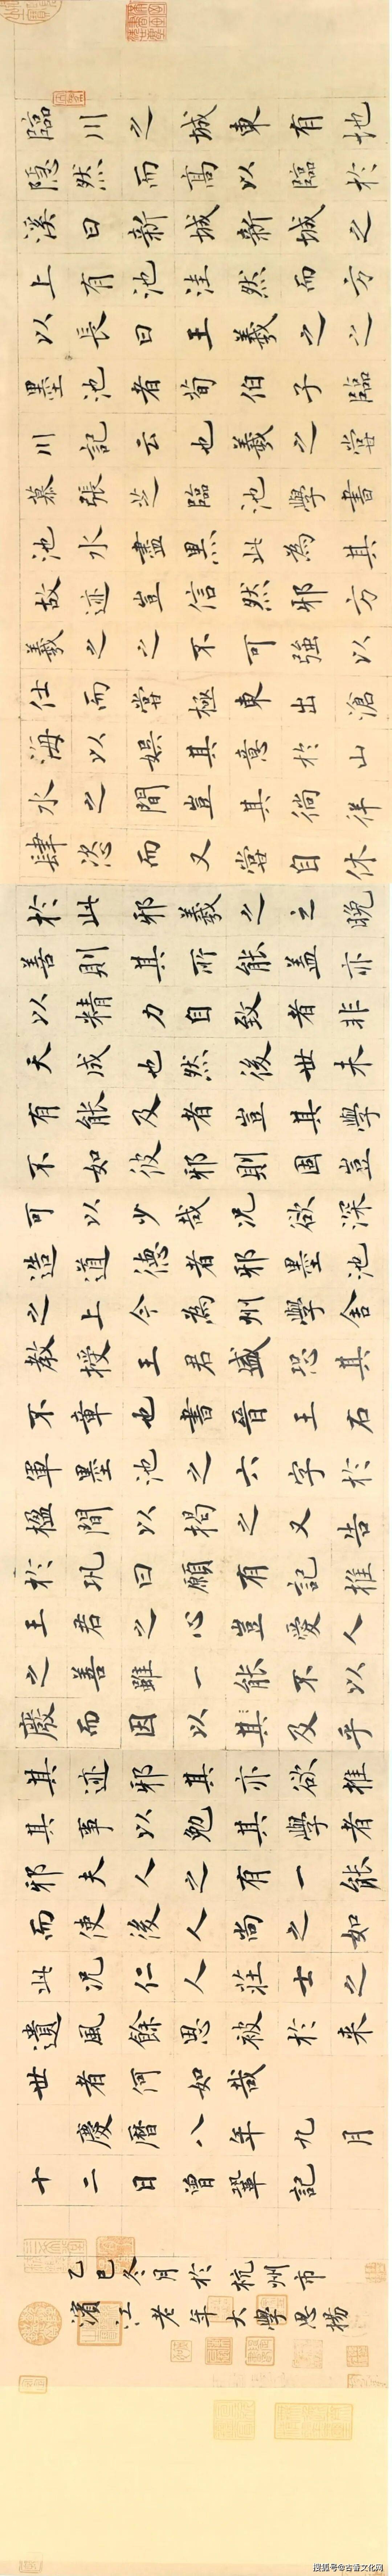 臨川之城東有地
隱然而高以臨於
溪曰新城新城之
上有池洼然而方
以長曰王羲之之
墨池者荀伯子臨
川記云也羲之嘗
慕張芝臨池學書
池水盡黑此為其
故迹豈信然邪方
羲之之不可強以
仕而嘗極東出滄
海以娛其意於山
水之間豈其徜徉
肆恣而又嘗自休
於此邪羲之之晚
善則其所能蓋亦
以精力自致者非
天成也然後世未
有能及者豈其學
不如彼邪則固豈
可以少哉況欲深
造道德者邪墨池
之上今為州學舍
教授王君盛恐其
不章也書晉王右
軍墨池之六字於
楹間以揭之又告
於鞏曰願有記推
王君之心豈愛人
之善雖一能不以
廢而因以其及乎
其迹邪其亦欲推
其事以勉其學者
邪夫人之有一能
而使後人尚之如
此況仁人莊士之
遺風餘思被於來
世者何如哉
慶曆八年九月
十二日曾鞏記
乙巳冬月於杭州市
濱江老年大學思揚
搜狐号@古香文化网